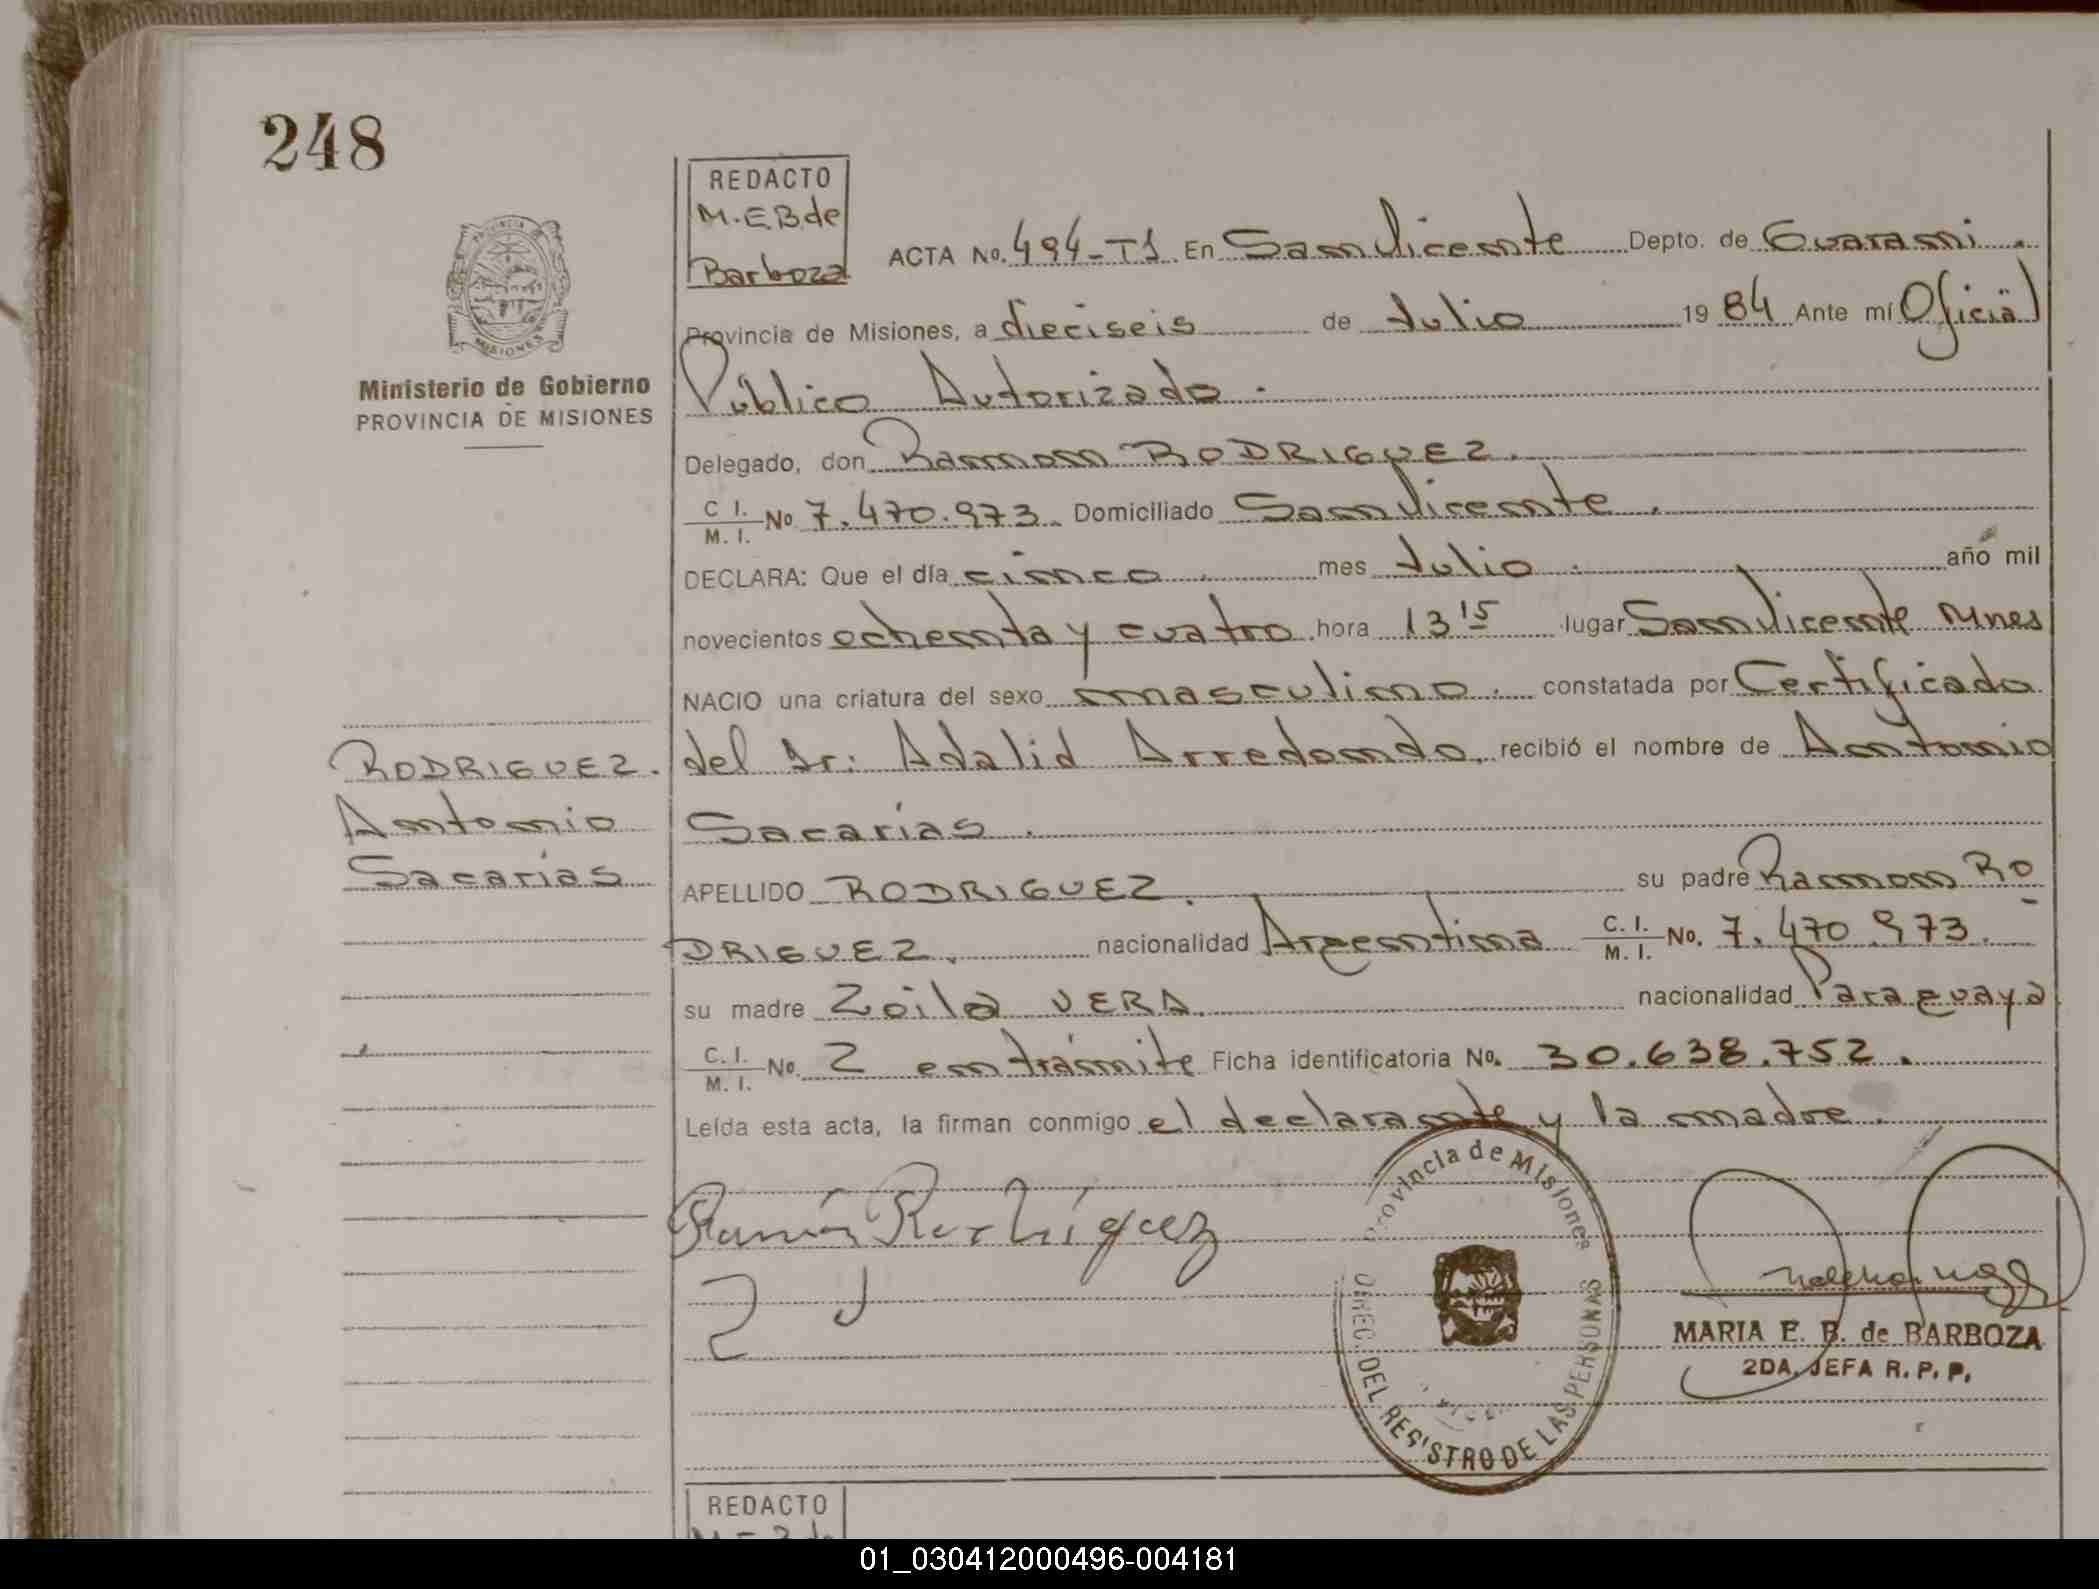 248
REDACTO
M.E.B de
Barboza
PROVINCIA
MISIONES
Ministerio de Gobierno
PROVINCIA DE MISIONES
ACTA No. 494-T1 En San Vicente Depto. de Guarani.
Provincia de Misiones, a dieciseis de Julio 1984 Ante mí Oficial
Público Autorizado.
Delegado, don Ramon RODRIGUEZ.
C I. / M. I. No 7.470.973 Domiciliado San Vicente.
DECLARA: Que el día cinco. mes Julio. año mil
novecientos ochenta y cuatro hora 13 15 lugar San Vicente Mnes
NACIO una criatura del sexo masculino. constatada por Certificado
del Dr: Adalid Arredondo. recibió el nombre de Antonio
Sacarías.
APELLIDO RODRIGUEZ. su padre Ramon RO
DRIGUEZ. nacionalidad Argentina C. I. / M. I. No. 7.470.973.
su madre Zoila VERA. nacionalidad Paraguaya
C. I. / M. I. No. 2 en trámite Ficha identificatoria No. 30.638.752.
Leída esta acta, la firman conmigo el declarante y la madre.
RODRIGUEZ.
Antonio
Sacarías
Ramón Rodríguez
Z V
Provincia de Misiones
DIREC. DEL REGISTRO DE LAS PERSONAS
MARIA E. B. de BARBOZA
2DA. JEFA R. P. P.
REDACTO
01_030412000496-004181